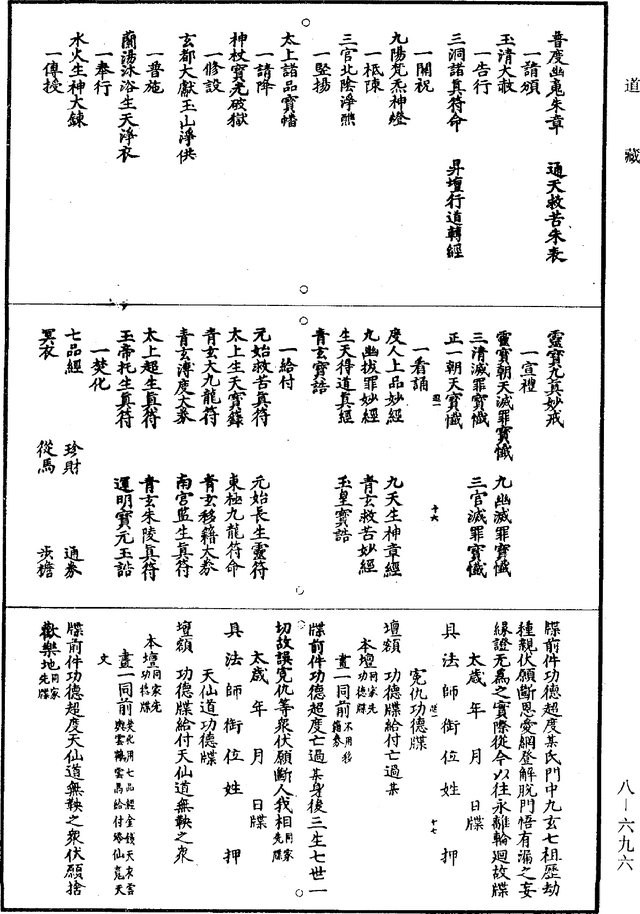 道藏
普度幽䰟朱章　通天救苦朱表
一請頒
玉清大赦
一告行
三洞諸真符命　昇壇行道轉經
一開祝
九陽梵炁神燈
一祗陳
三官北陰淨醮
一竪揚
太上諸品寶幡
一請降
神杖寶光破獄
一修設
玄都大獻玉山淨供
一普施
蘭湯沐浴生天淨衣
一奉行
水火生神大鍊
一傳授
靈寶九真妙戒
一宣禮
靈寶朝天滅罪寶懺　九幽滅罪寶懺
三清滅罪寶懺　三官滅罪寶懺
正一朝天寶懺
一看誦　十六
度人上品妙經　九天生神章經
九幽拔罪妙經　青玄救苦妙經
生天得道真經　玉皇寶誥
青玄寶誥
一給付
元始救苦真符　元始長生靈符
太上生天寶籙　東極九龍符命
青玄大九龍符　青玄移籍大券
青玄溥度大券　南宮監生真符
太上超生真符　青玄朱陵真符
玉帝托生真符　運明寶元玉誥
一焚化
七品經　珍財　通券
冥衣　從馬　步擔
牒前件功德超度某氏門中九玄七祖歷劫
種親伏願斷恩愛網登解脫門悟有漏之妄
緣證无為之實際從今以往永離輪迴故牒
太歲　年　月　日牒
具　法　師　銜　位　姓　押
冤仇功德牒　十七
壇額　功德牒給付亡過某
本壇同家先功德牒
畫一同前不用移籍券
牒前件功德超度亡過某身後三生七世一
切故誤冤仇等衆伏願斷人我相同家先牒
太歲　年　月　日牒
具　法　師　銜　位　姓　押
天仙道功德牒
壇額　功德牒給付天仙道無鞅之衆
本壇同家先功德牒
畫一同前
文
牒前件功德超度天仙道無鞅之衆伏願捨
歡樂地同家先牒
八—六九六